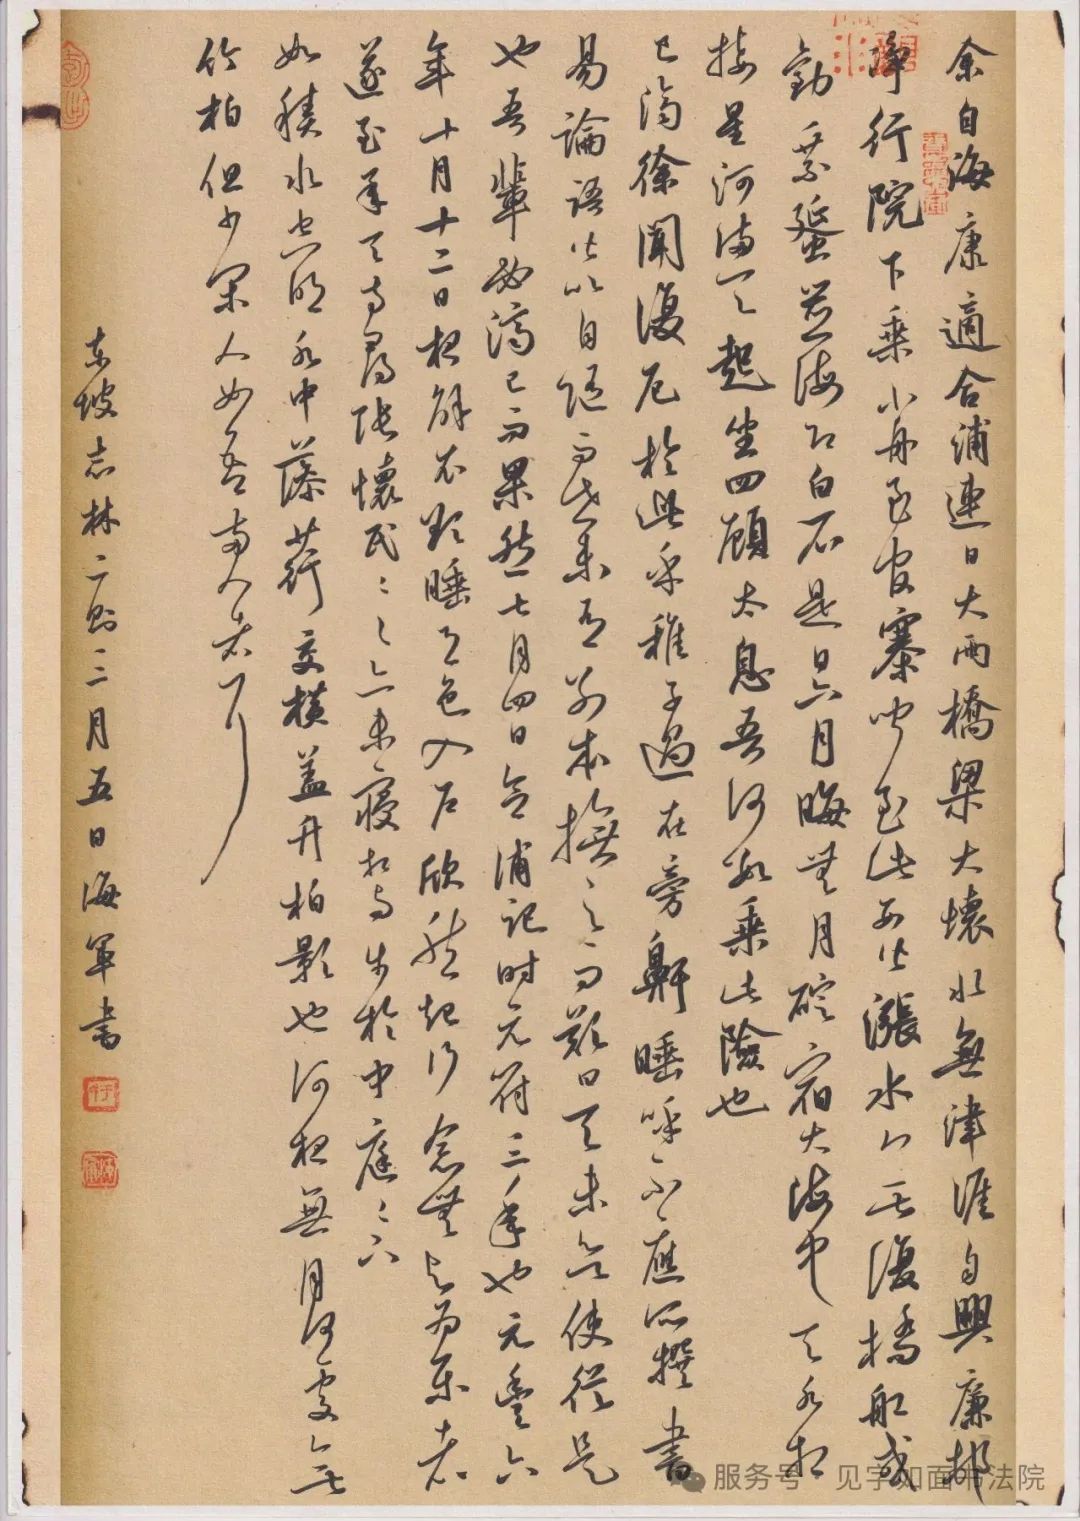 余自海康適合浦連日大雨橋梁大壞水無津涯自興廉邨
淨行院下乘小舟至官寨聞至此西皆漲水無復橋船或
勸乘蜑並海即白石是日六月晦無月碇宿大海中天水相
接星河滿天起坐四顧太息吾何數乘此險也
已濟徐聞復厄於此乎稚子過在旁鼾睡呼不應所撰書
易論語皆以自隨而世未有別本撫之而歎曰天未欲使從是
也吾輩必濟已而果然七月四日合浦記時元符三年也元豐六
年十月十二日夜解衣欲睡月色入戶欣然起行念無與為樂者
遂至承天寺尋張懷民〻〻亦未寢相與步於中庭〻下
如積水空明水中藻荇交橫蓋竹柏影也何夜無月何處無
竹柏但少閑人如吾兩人者耳
东坡志林二則三月五日海軍书
服务号 · 见字如面书法院